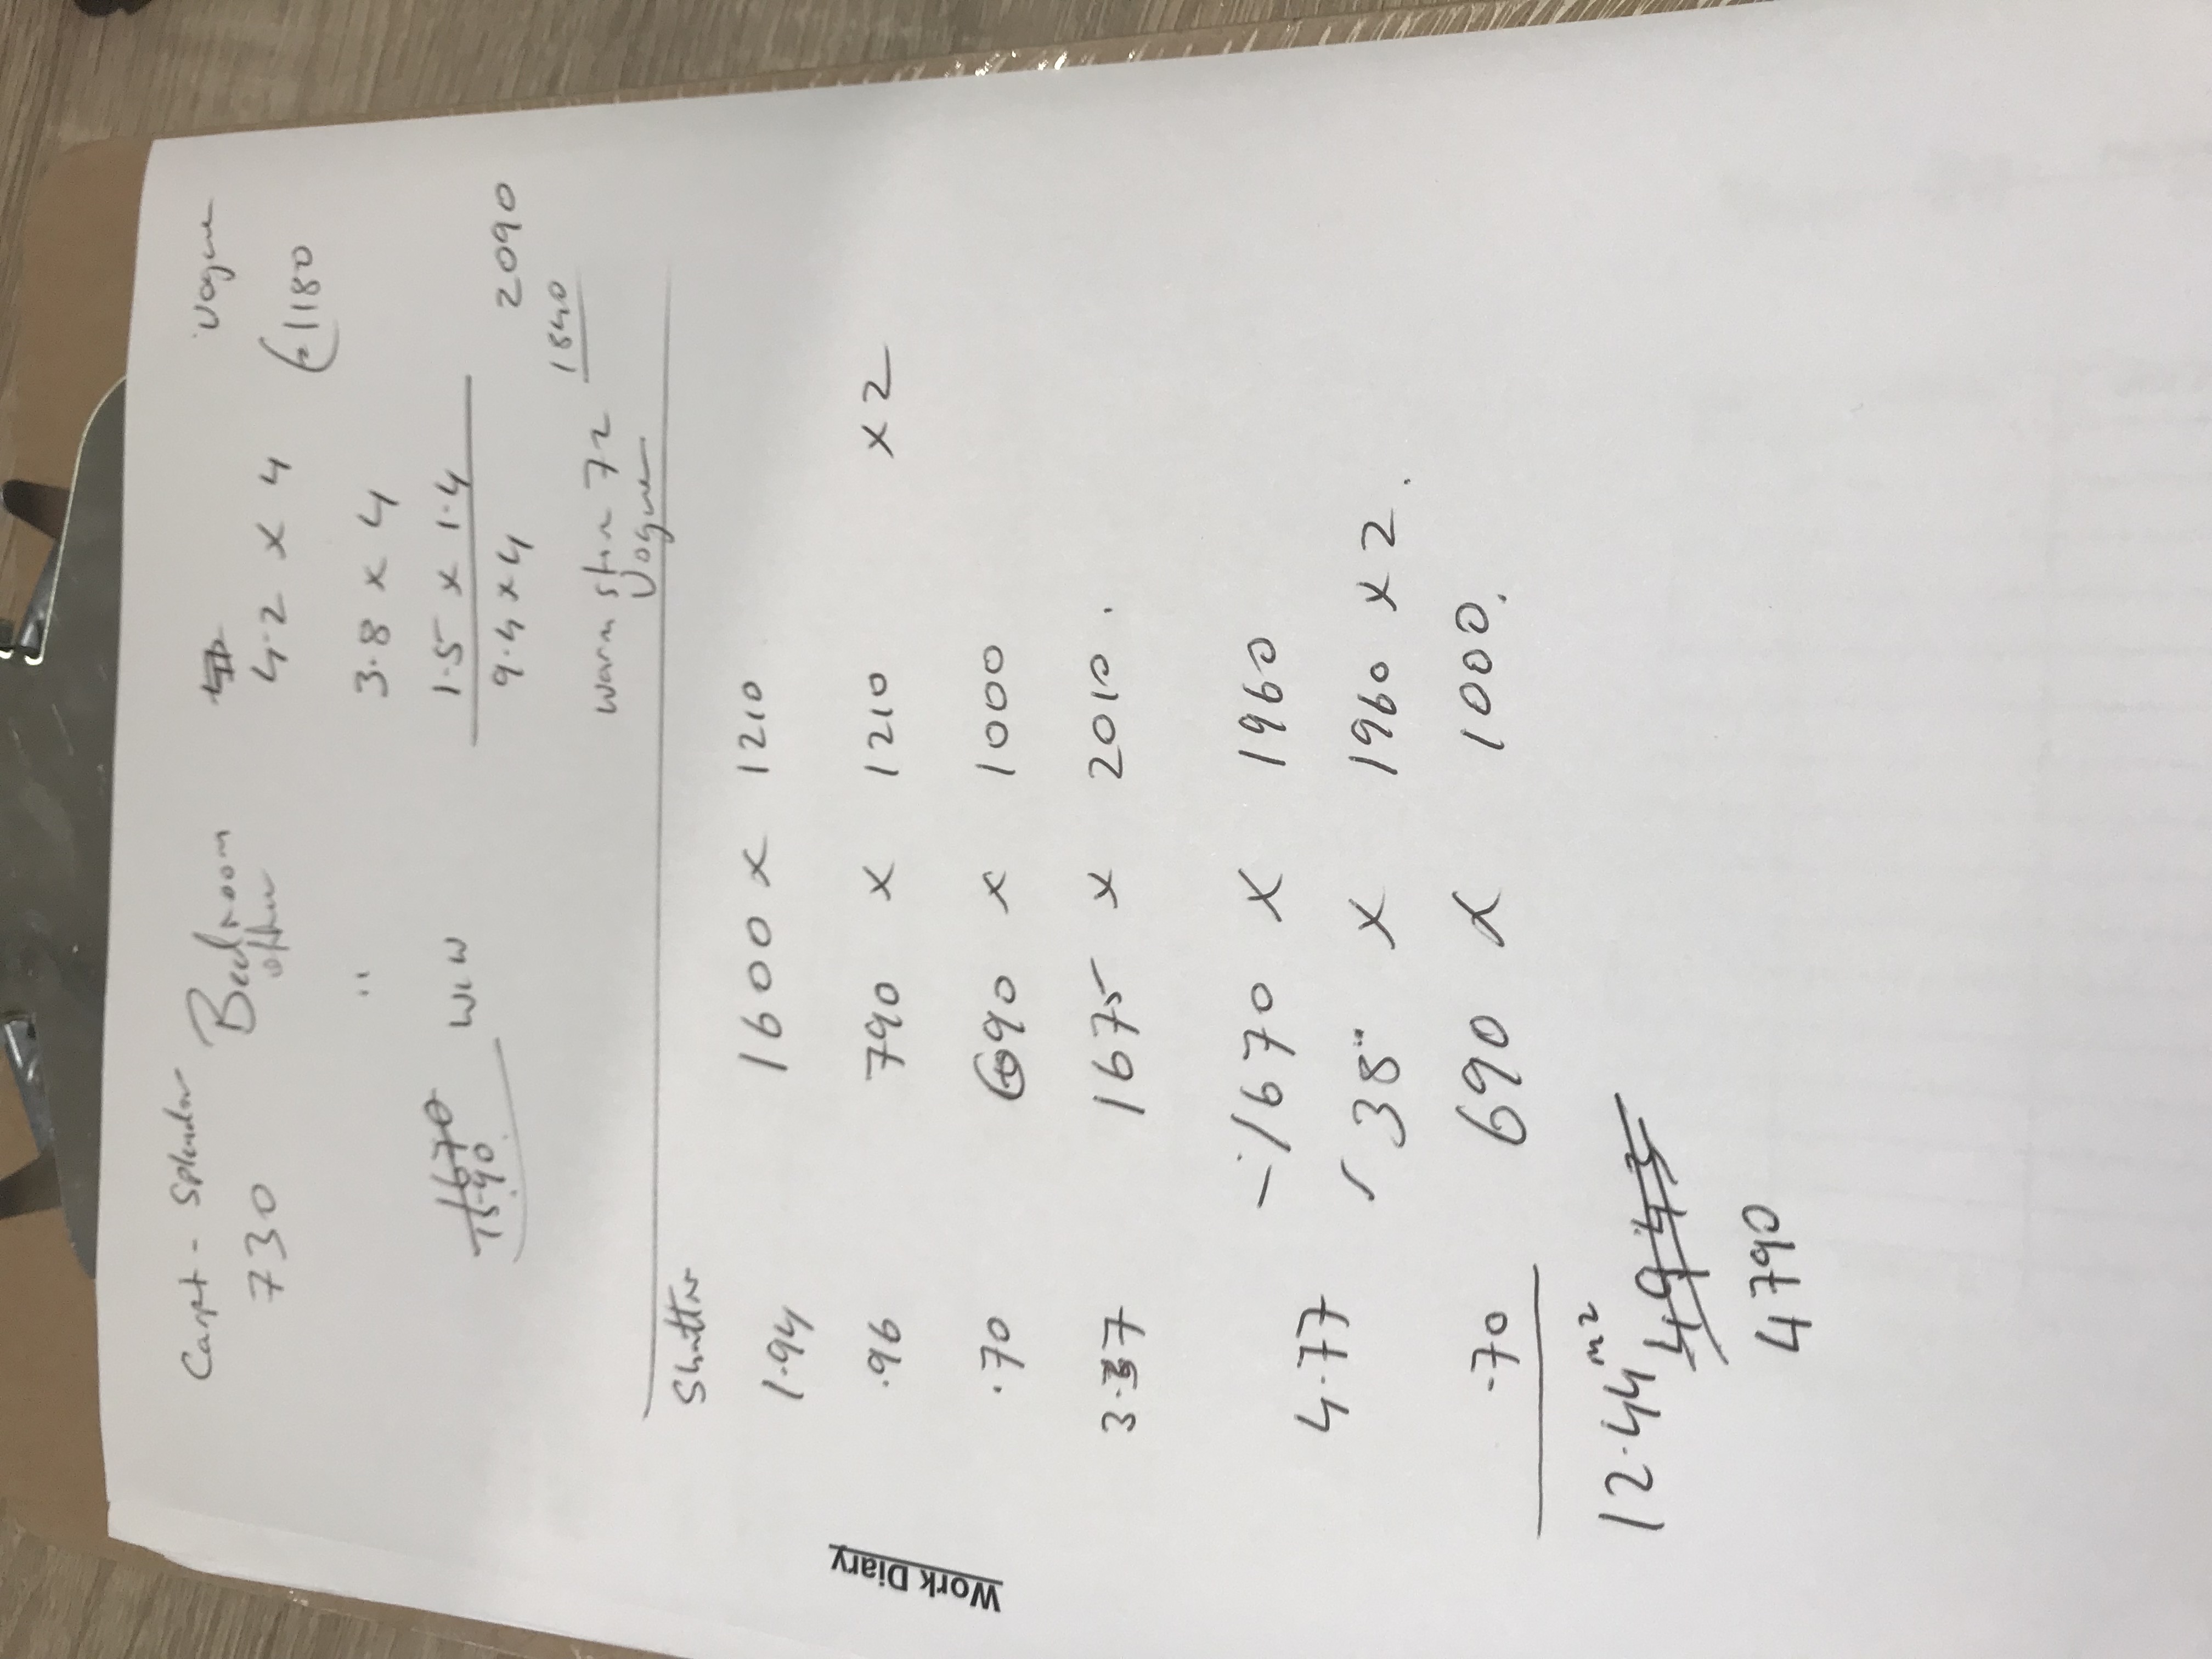 Carpt - Splendor Vogue
730 Bedroom 4.2 x 4 £1180
other
" 3.8 x 4
1670 WIW 1.5 x 1.4
15.90. 9.4 x 4 2090
1840
warm stone 72
Vogue
Shutters
1.94 1600 x 1210
.96 790 x 1210 x 2
.70 690 x 1000
3.37 1675 x 2010.
4.77 1670 x 1960
38" x 1960 x 2.
.70 690 x 1000.
12.44 m2
4790
Work Diary